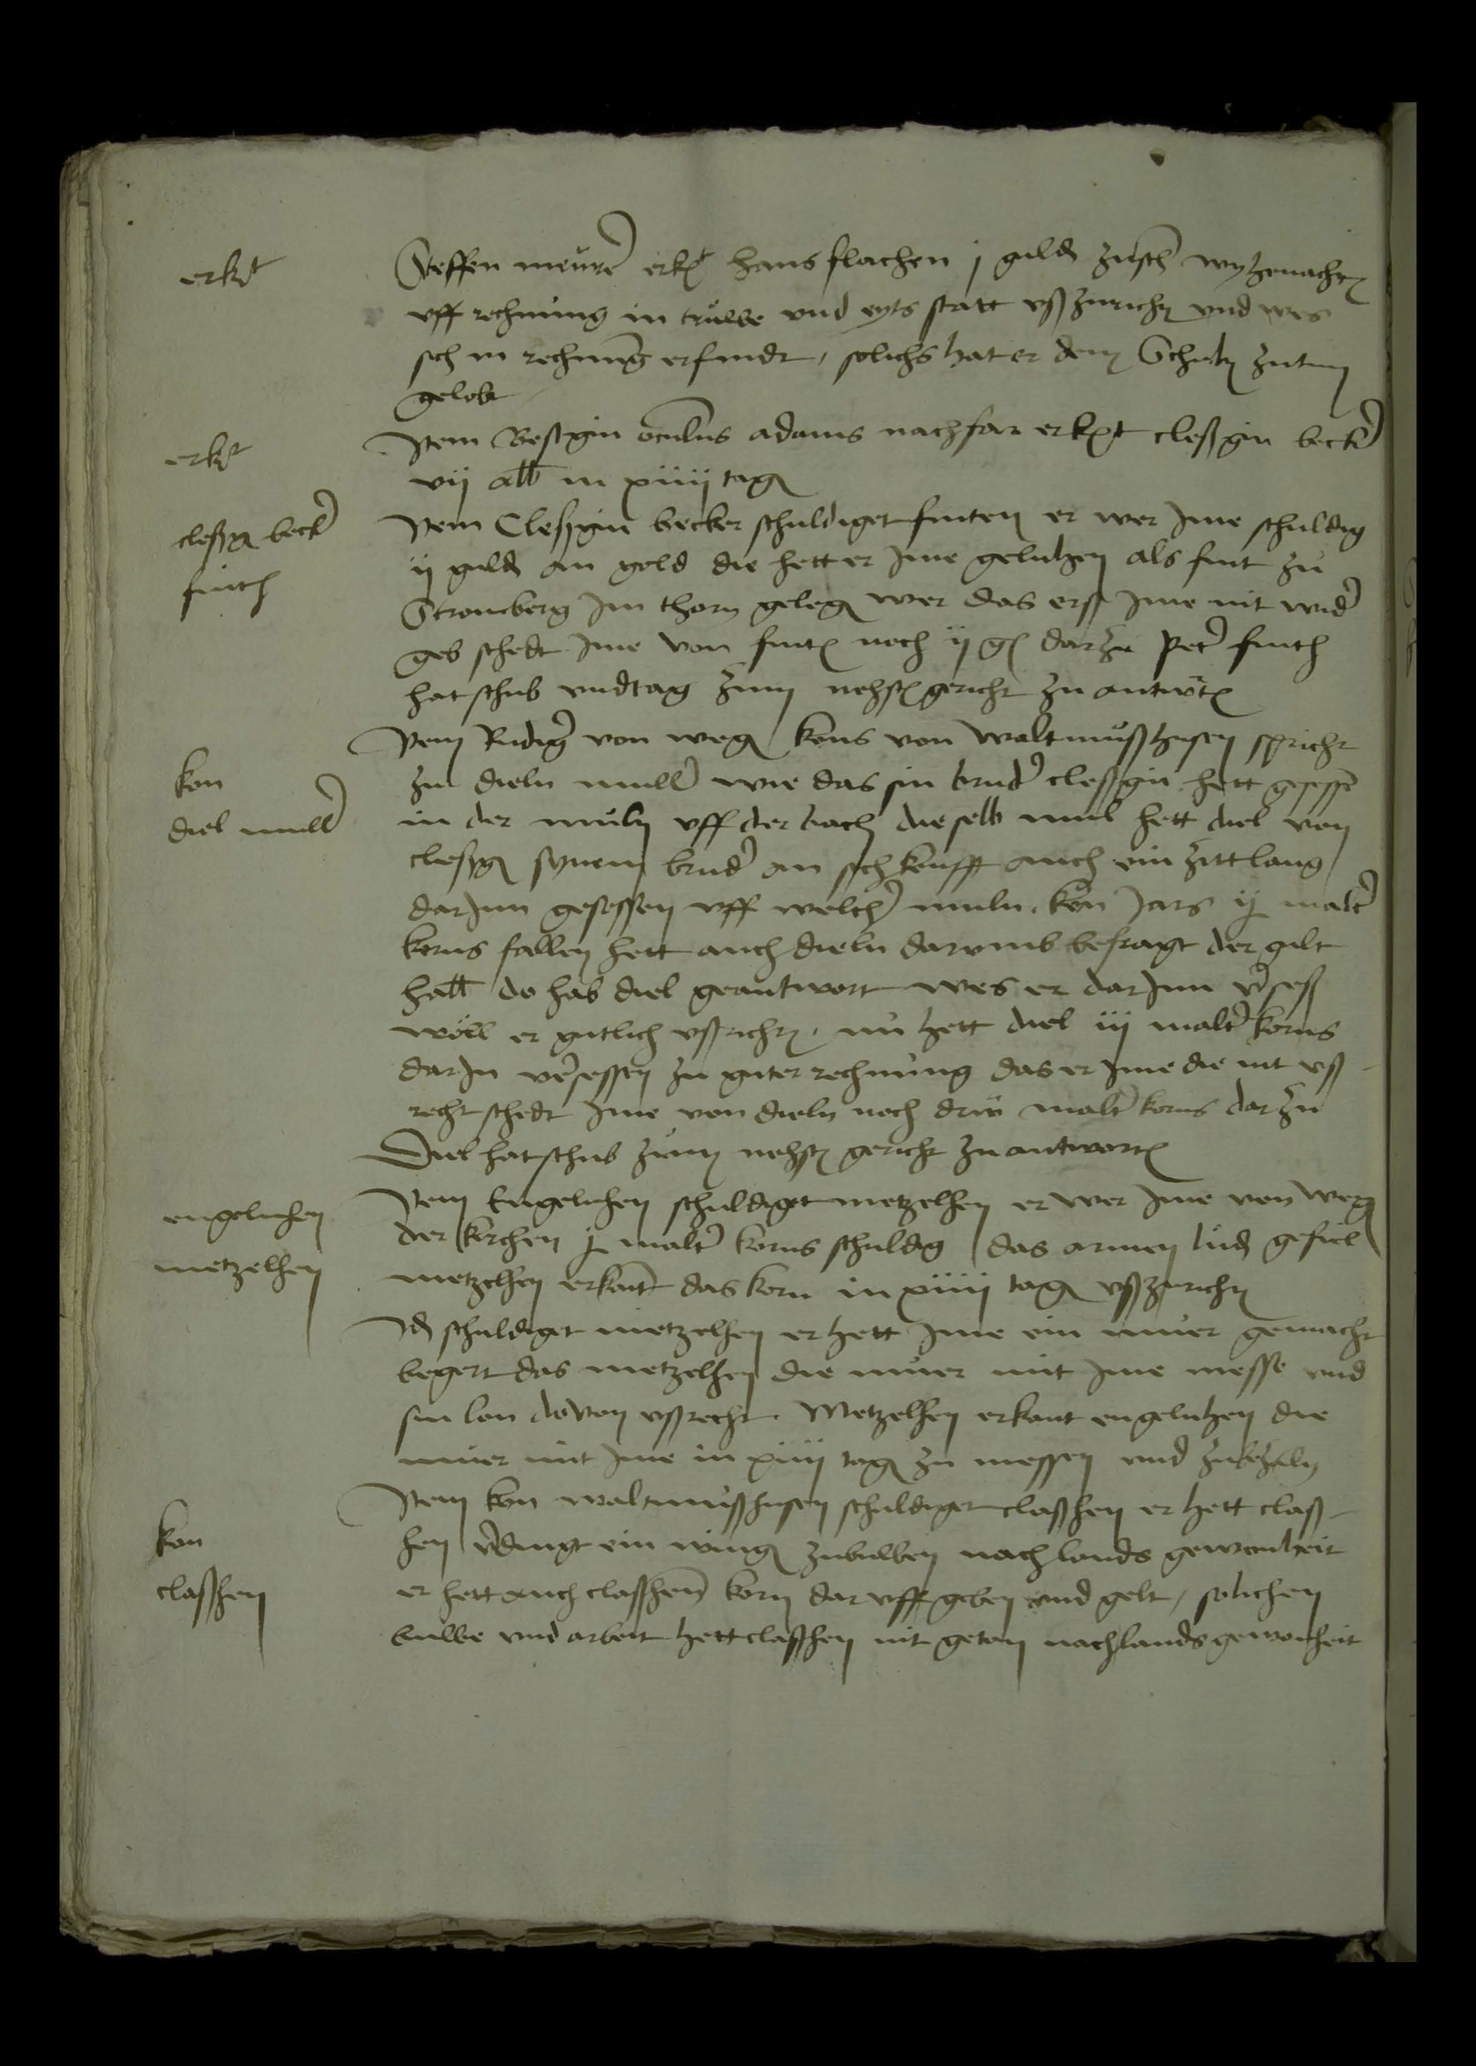 erkt
Steffen meurer erkt hans flachen j guld zusch wyhenacht
uff rechnung in truwe und eyts statt ußzuricht und wes
sich in rechnung erfindt, solichs hat er dem Schulth zutun
gelobt
erkt
Item Bestgin adams nachfar erkt cleßgin becker
vij alb in xiiij tag
cleßg becker
finth
Item Cleßgin becker schuldiget finten er wer ime schuldig
ij guld an gold die hett er ime geluhen als fint zu
Stromberg im thorn geleg wer das erß ime nit wider
geb schedt ime von fint noch ij g darzu Peter finth
hat schub und tag zum nehst gericht zu antwort
kon
diel muller
Item Rudiger von weg kons von waltmußhusen spricht
zu dieln muller wie das sin bruder cleßgin hett gesessen
in der muln uff der bach dieselb mul hett diel von
cleßg synem bruder an sich kaufft auch ein zitt lang
darInn gesessen uff welcher muln kon Jars ij malter
korns fallen hett auch dieln darumb befragt der gult
halb do hab diel geantwort wes er darInn verseß
wöll er gutlich ußricht. nu hett diel iij malter korns
darIn versessen zu guter rechnung das er ime die nit uß
recht schedt ime von dieln noch driw malter korns dar zu
Diel hat schub zum nehst gericht zu antwort
engelnhen
metzelhen
Item Engelnhen schuldiget metzelhen er wer ime von weg
der kirchen j malter korns schuldig das armen lud gefiel
metzelhen erkant das korn in xiiij tag ußzuricht
Id schuldiget metzelhen er hett ime ein muer gemacht
begert das metzelhen die muer mit ime messe und
sin lon davon ußrecht. Metzelhen erkant engelnhen die
muer mit ime in xiiij tag zu messen und zubezaln
kon
claßhen
Item kon waltmußhusen schuldiget claßhen er hett claß-
hen verdingt ein wing zubuwen nach lands gewonheit
er hett auch claßhenn korn daruff geben und gelt, solichen
buwe und arbeit hett claßhen nit geton nach lands gewonheit